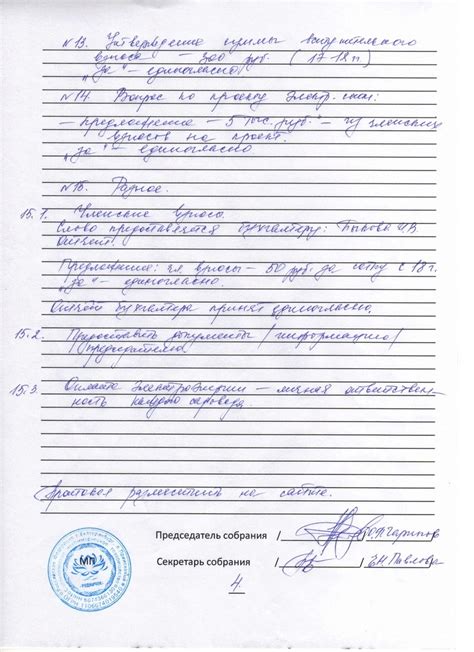 №13. Утверждение суммы вступительного
взноса – 300 руб. (17-18 гг)
„За" – единогласно
№14. Вопрос по проекту электр.
– предложение – 5 тыс. руб. – из членских
взносов на проект.
„за" – единогласно
№15. Разное.
15.1. Членские взносы.
Слово предоставляется бухгалтеру:
Отчёт.
Предложение: чл. взносы – 50 руб. за сотку с 18 г.
„за" – единогласно.
Отчёт бухгалтера принят единогласно.
15.2. Предоставить документы /информацию/
председателю
15.3. Оплата электроэнергии – личная ответствен-
ность каждого садовода.
Протокол разместить на сайте.
Председатель собрания / /
Секретарь собрания / / Павлова
4.
МП